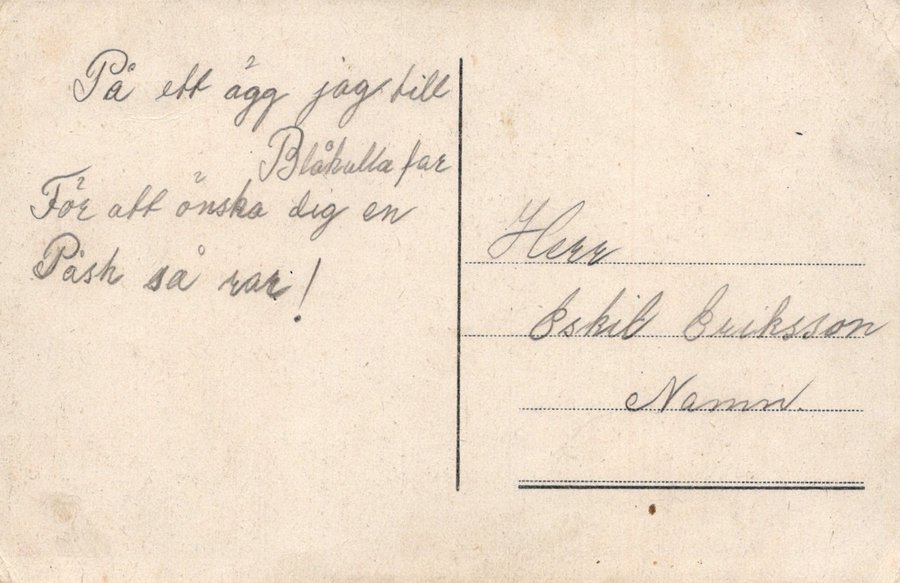 På ett ägg jag till
Blåkulla far
För att önska dig en
Påsk så rar!
Herr
Eskil Eriksson
Namn.